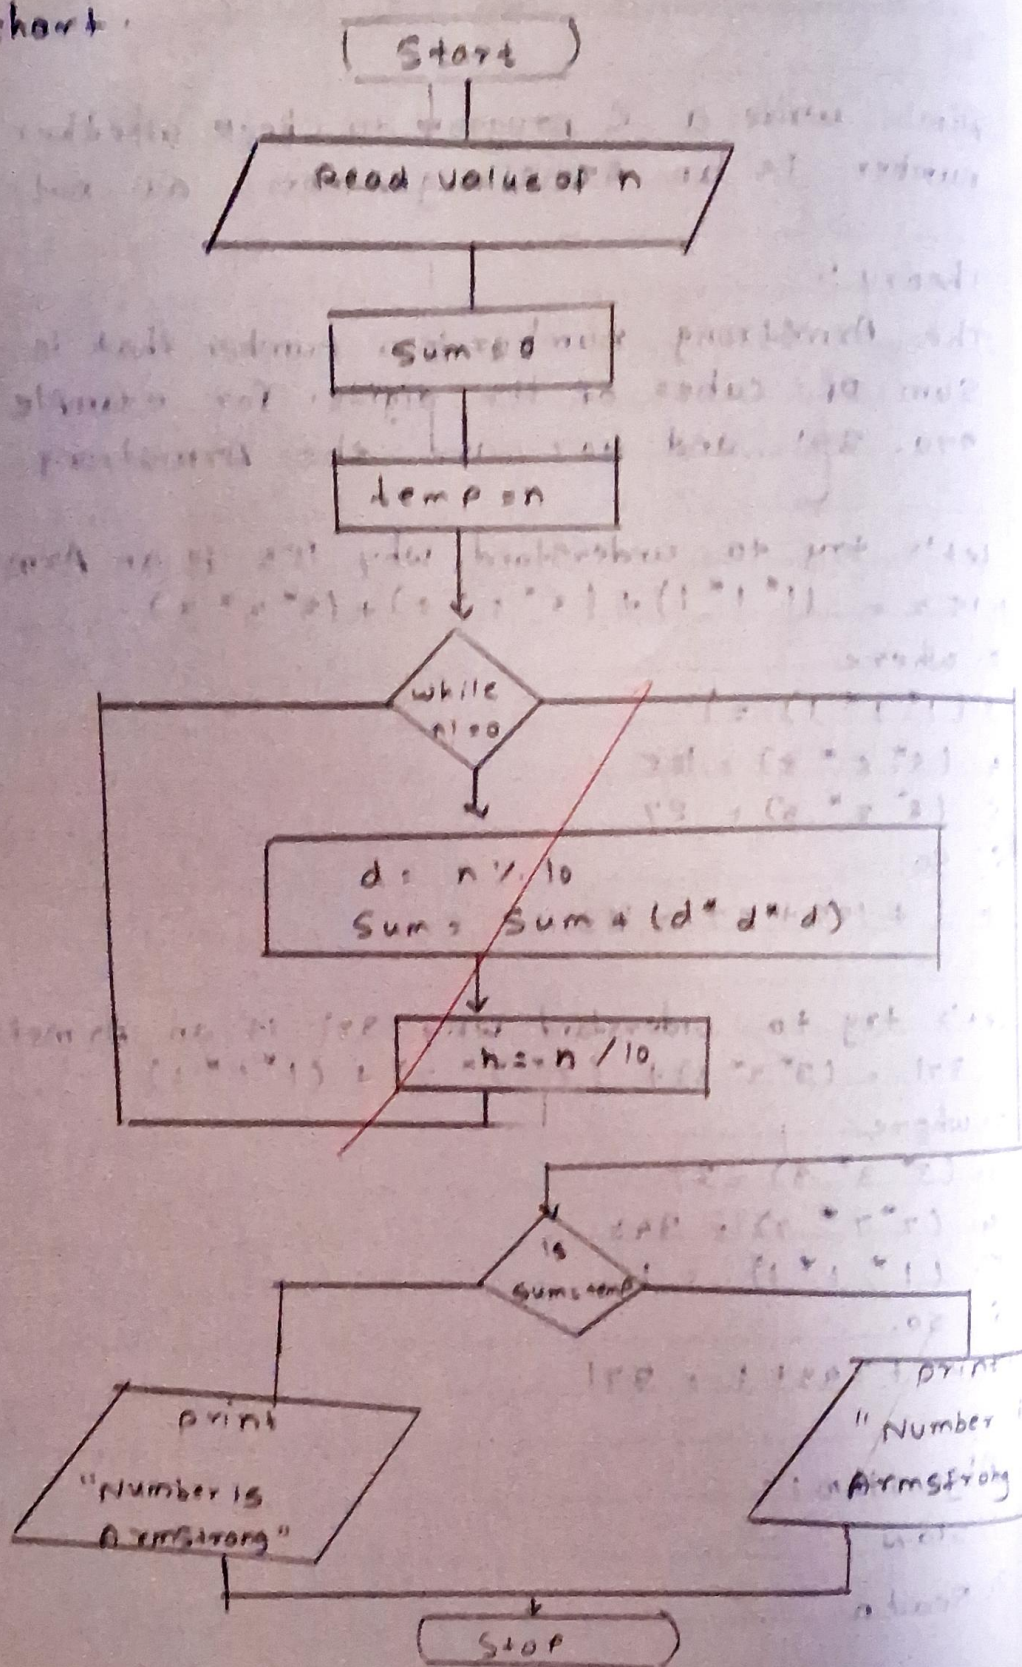 hart.
Start
Read value of n
Sum = 0
temp = n
while
n! = 0
d = n % 10
Sum = Sum + (d* d* d)
n = n / 10
is
sum = temp
print
"Number is
Armstrong"
print
"Number
Armstrong
Stop